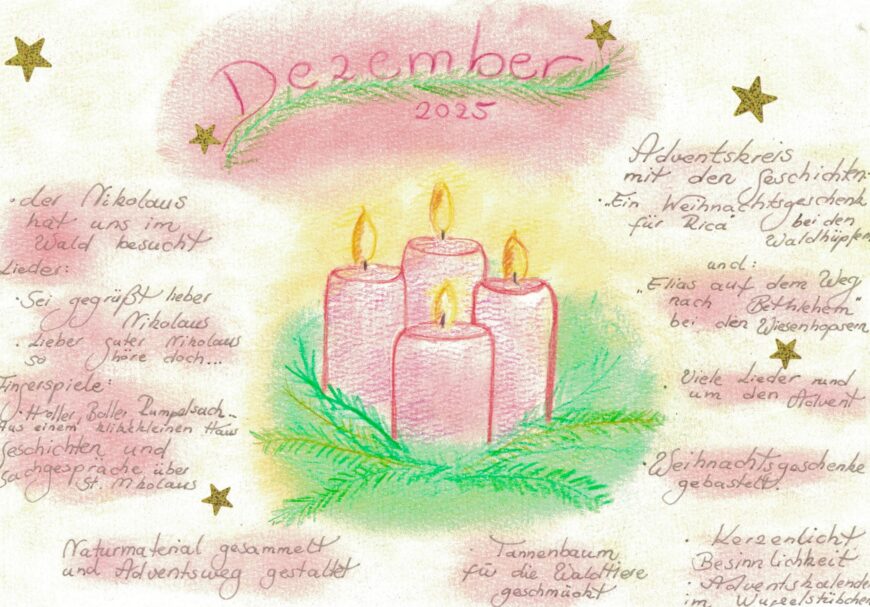 Dezember
2025
· der Nikolaus
hat uns im
Wald besucht
Lieder:
· Sei gegrüßt lieber
Nikolaus
· Lieber guter Nikolaus
so höre doch...
Fingerspiele:
· Holler, Boller Rumpelsack..
Aus einem klitzekleinen Haus
Geschichten und
Sachgespräche über
St. Nikolaus
Naturmaterial gesammelt
und Adventsweg gestaltet
· Tannenbaum
für die Waldtiere
geschmückt
Adventskreis
mit den Geschichtn.
· "Ein Weihnachtsgeschenk
für Rica" bei den
Waldhüpfern
und:
"Elias auf dem Weg
nach Bethlehem"
bei den Wiesenhopsern
· Viele Lieder rund
um den Advent
· Weihnachtsgeschenke
gebastelt.
· Kerzenlicht
Besinnlichkeit
· Adventskalender
im Wurzelstübchen